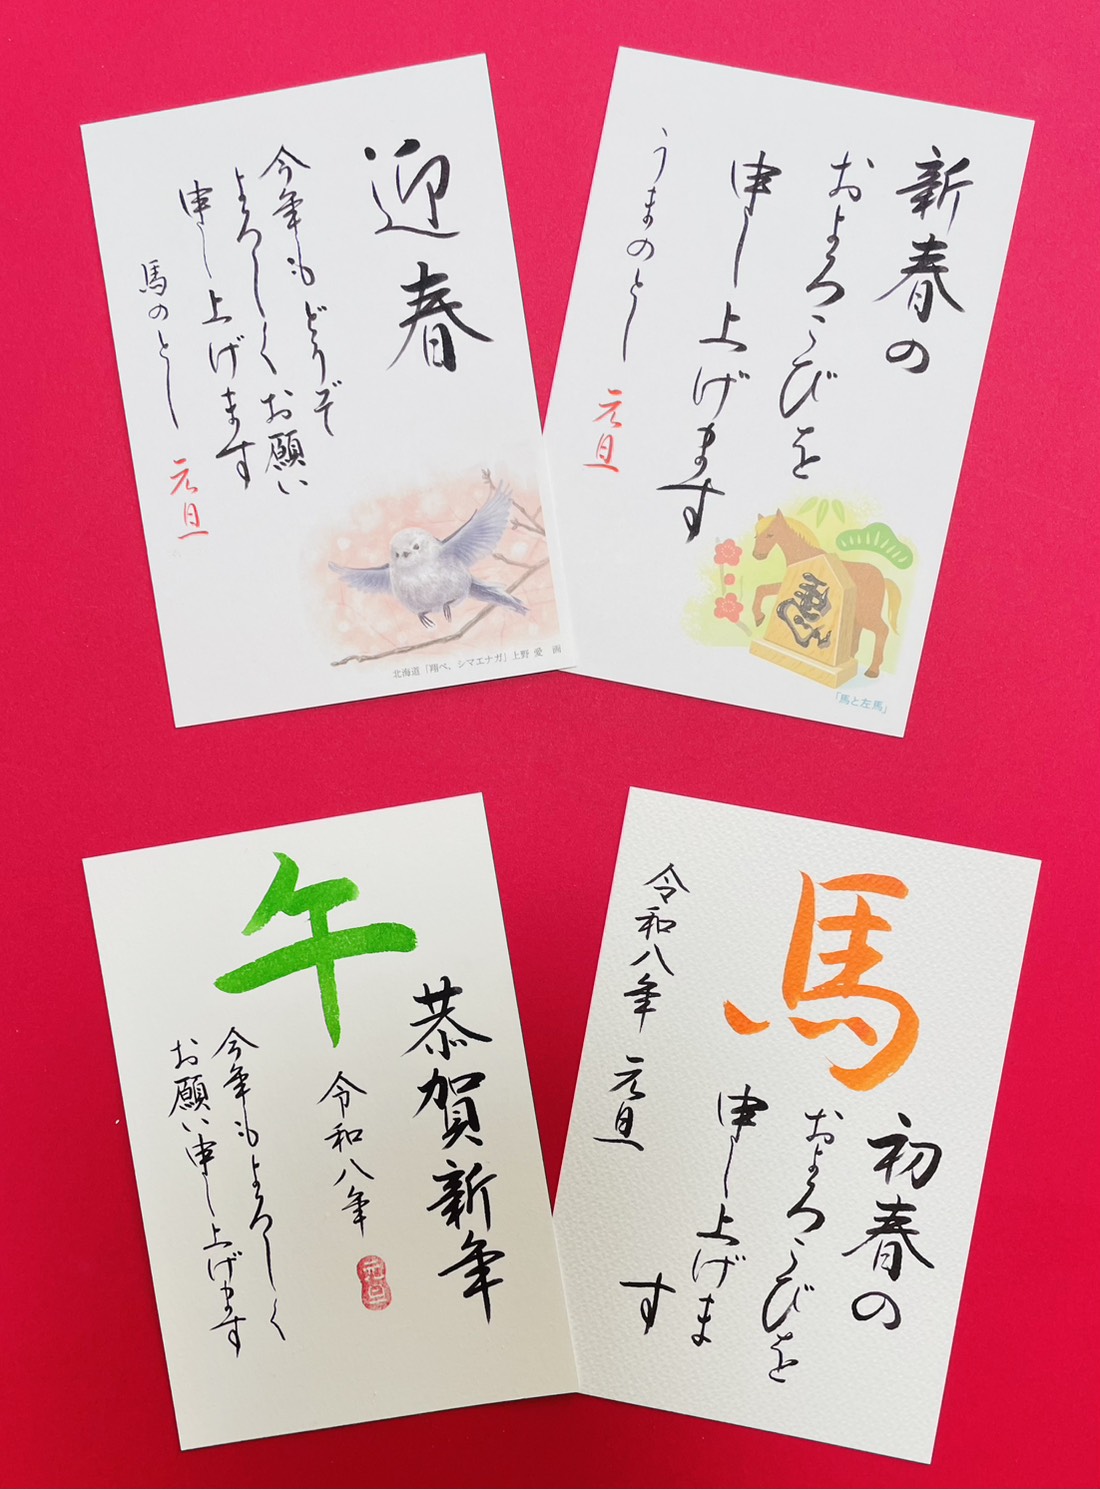 迎春
今年もどうぞ
よろしくお願い
申し上げます
馬のとし
元旦
北海道「翔べ、シマエナガ」上野 愛 画
新春の
およろこびを
申し上げます
うまのとし
元旦
馬
「馬と左馬」
午
恭賀新年
令和八年
元旦
今年もよろしく
お願い申し上げます
馬
初春の
およろこびを
申し上げま
す
令和八年
元旦